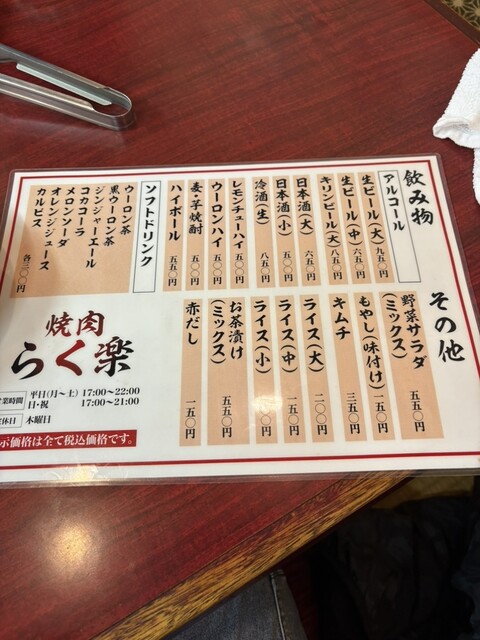 飲み物
アルコール
生ビール(大) 九五〇円
生ビール(中) 六五〇円
キリンビール(大) 八五〇円
日本酒(大) 六五〇円
日本酒(小) 五〇〇円
冷酒(生) 八五〇円
レモンチューハイ 五五〇円
ウーロンハイ 五〇〇円
麦・芋焼酎 五〇〇円
ハイボール 五五〇円
ソフトドリンク
ウーロン茶
黒ウーロン茶
ジンジャーエール
コカコーラ
メロンソーダ
オレンジジュース
カルピス
各三〇〇円
その他
野菜サラダ(ミックス) 五五〇円
もやし(味付け) 二五〇円
キムチ 三五〇円
ライス(大) 二〇〇円
ライス(中) 一五〇円
ライス(小) 一〇〇円
お茶漬け(ミックス) 五五〇円
赤だし 一五〇円
焼肉
らく楽
営業時間 平日(月〜土) 17:00〜22:00
日・祝 17:00〜21:00
定休日 木曜日
示価格は全て税込価格です。